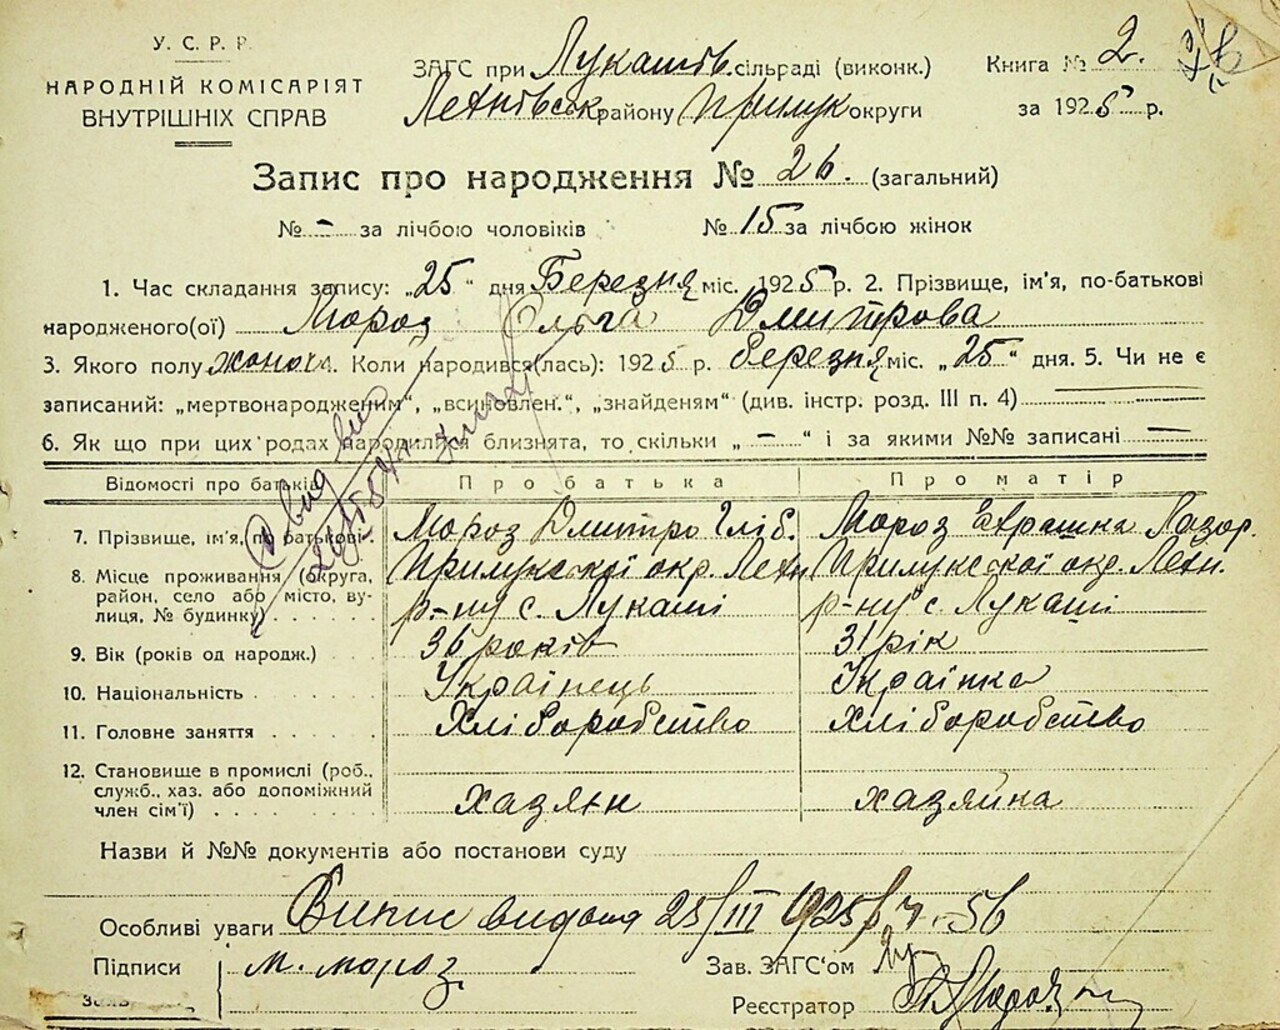 У. С. Р. Р.
НАРОДНІЙ КОМІСАРІЯТ
ВНУТРІШНІХ СПРАВ
ЗАГС при Лукашів. сільраді (виконк.)
Лехнівськ району Прилук округи
Книга № 2.
за 1925 р.
Запис про народження № 26. (загальний)
№ – за лічбою чоловіків № 15 за лічбою жінок
1. Час складання запису: „25“ дня Березня міс. 1925 р. 2. Прізвище, ім'я, по-батькові
народженого(ої) Мороз Ольга Дмитрова
3. Якого полу жоноч. Коли народився(лась): 1925 р. березня міс. „25“ дня. 5. Чи не є
записаний: „мертвонародженим“, „всиновлен.“, „знайденям“ (див. інстр. розд. III п. 4)
6. Як що при цих родах народилися близнята, то скільки „–“ і за якими №№ записані —
Відомості про батьків Про батька Про матір
7. Прізвище, ім'я, по батькові. Мороз Дмитро Гліб. Мороз Євфрашка Лазор.
8. Місце проживання (округа, район, село або місто, вулиця, № будинку) Прилукської окр. Лехн Прилукської окр. Лехн.
р-ну с. Лукаші р-ну с. Лукаші
9. Вік (років од народж.) 36 років 31 рік
10. Національність Українець Українка
11. Головне заняття Хліборобство Хліборобство
12. Становище в промислі (роб., служб., хаз. або допоміжний член сім'ї) хазяїн хазяйка
Назви й №№ документів або постанови суду
Особливі уваги Випис видана 25/III 1925 р ч. 56
Підписи М. Мороз Зав. ЗАГС'ом
Реєстратор